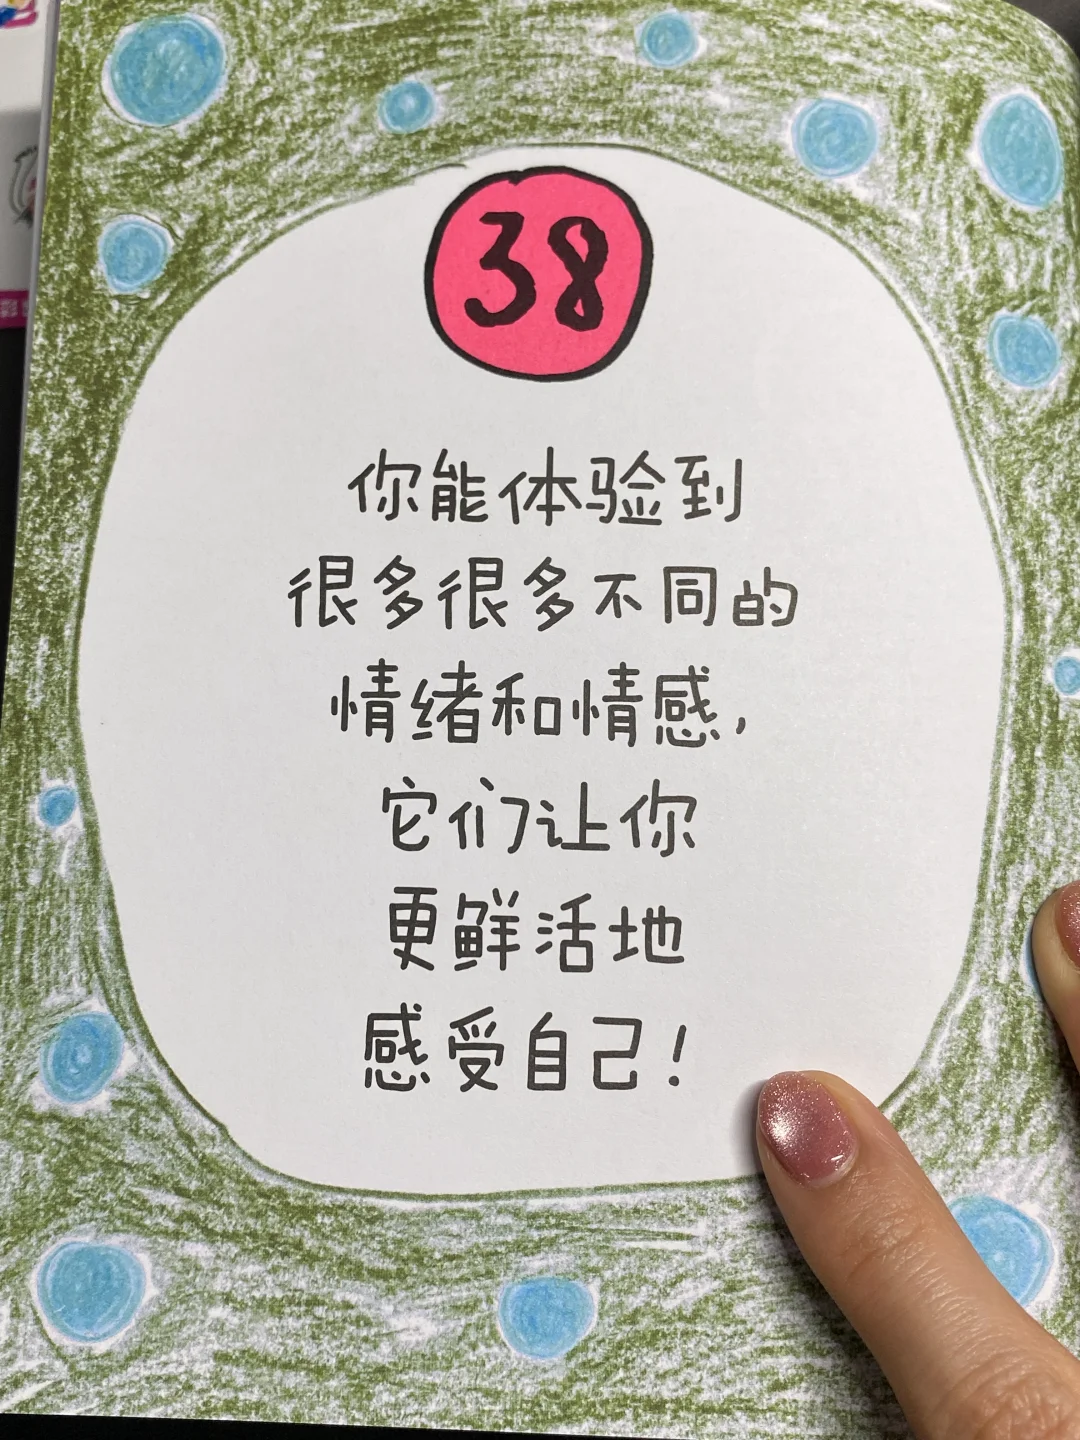 38
你能体验到
很多很多不同的
情绪和情感，
它们让你
更鲜活地
感受自己！